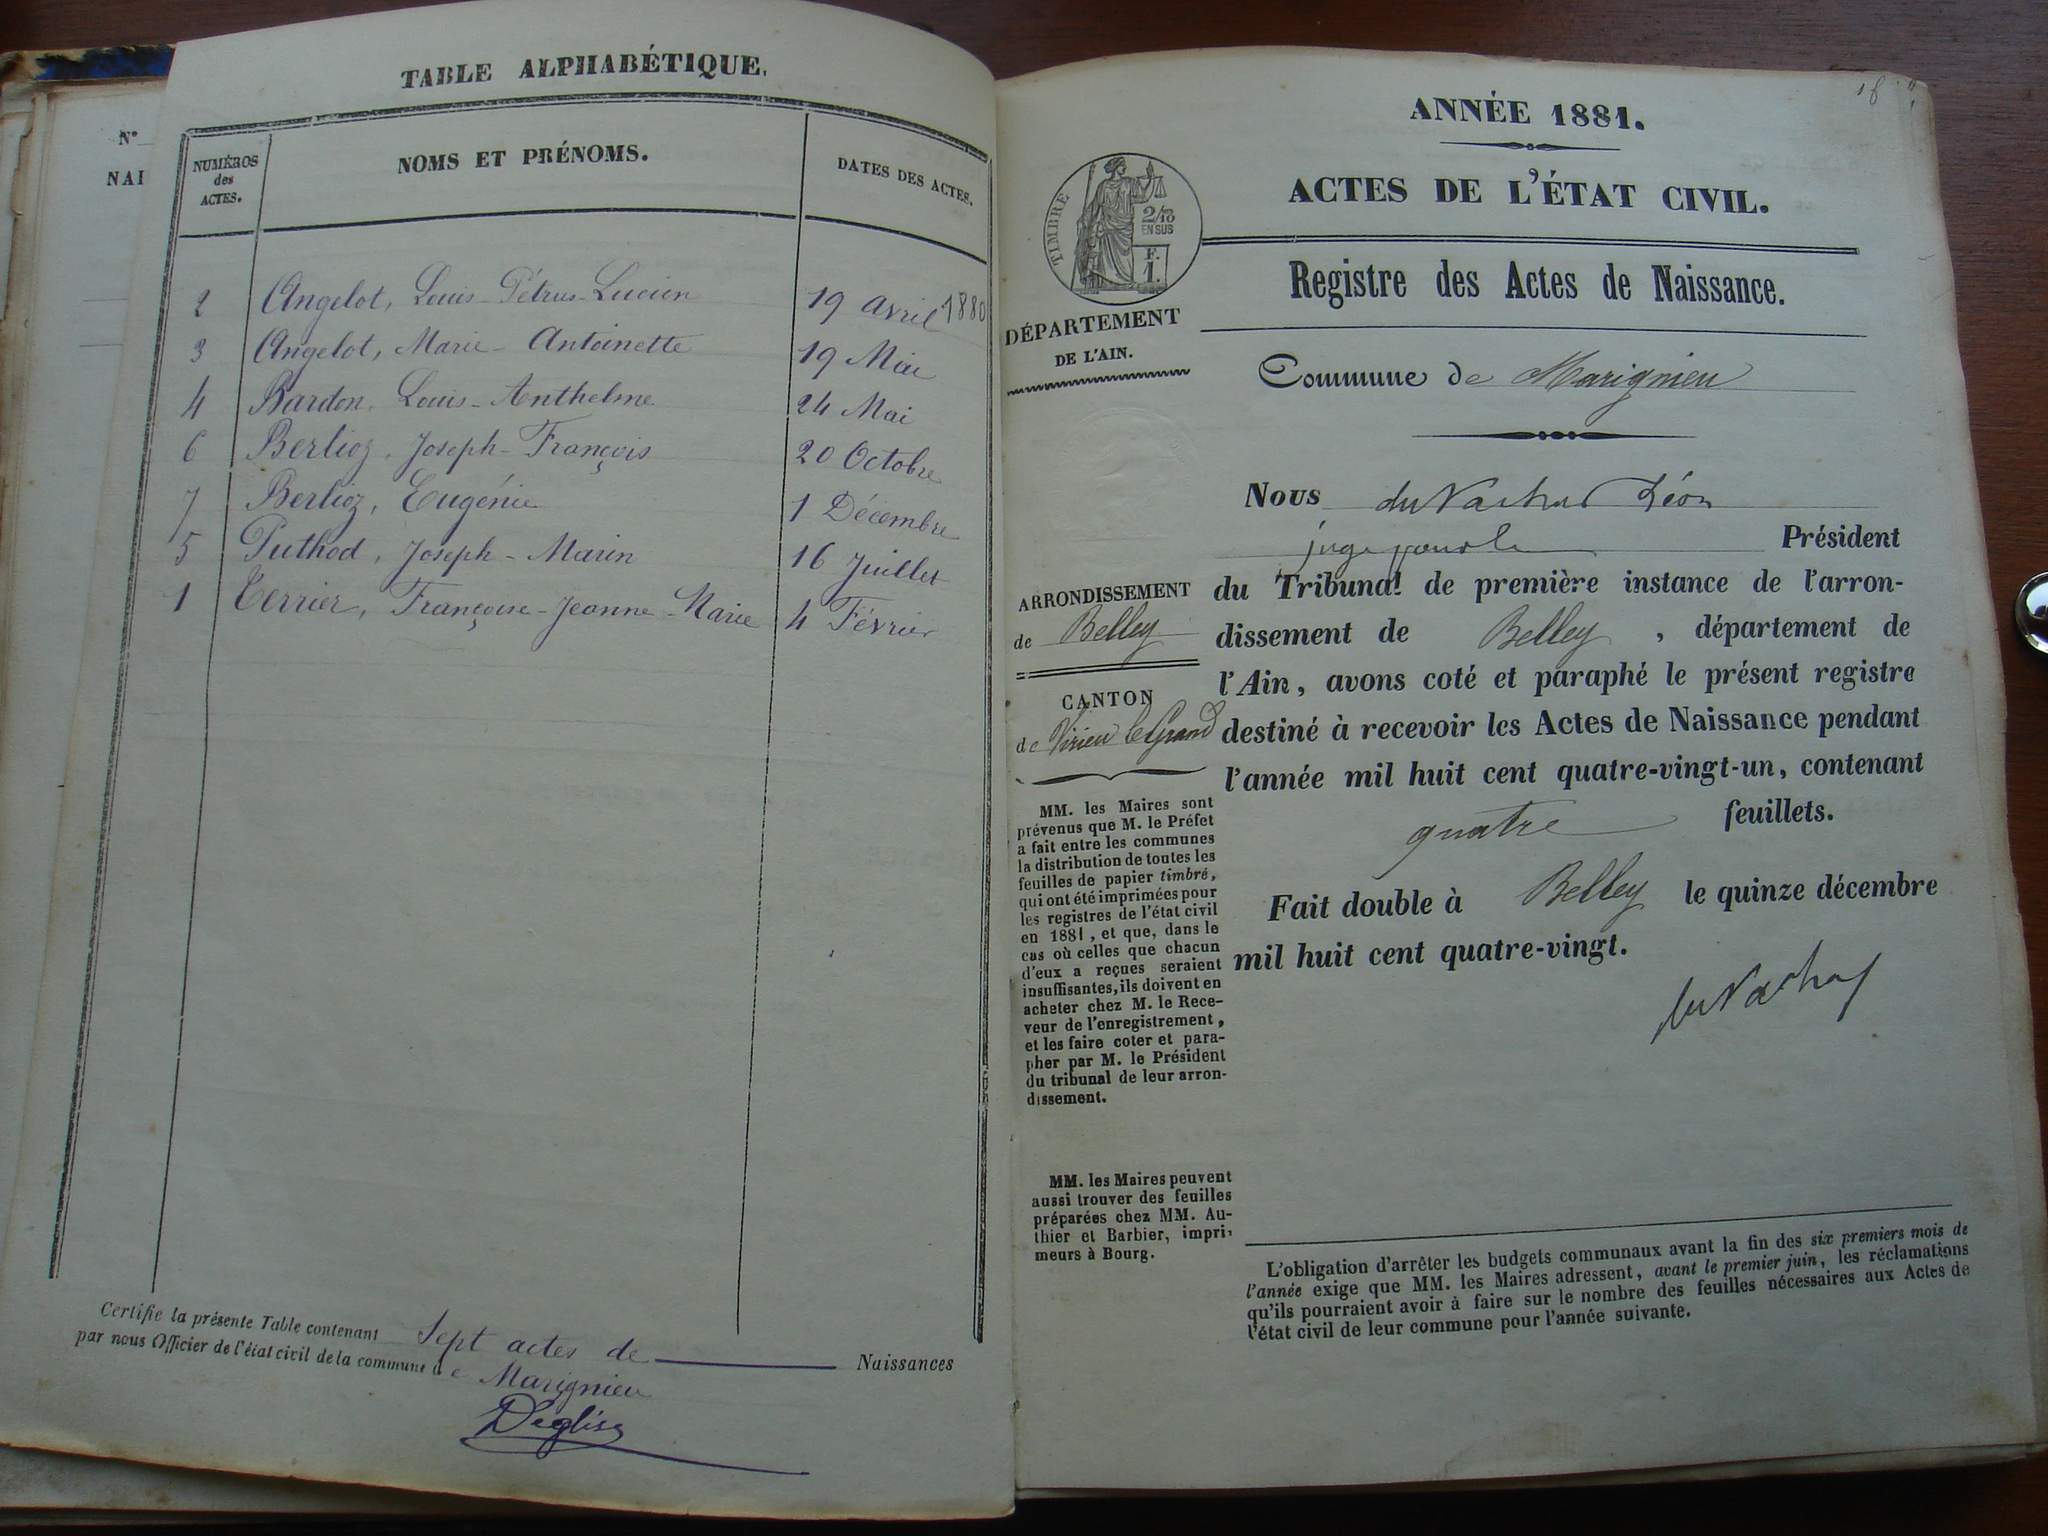 N°
NAI
TABLE ALPHABÉTIQUE.
NUMÉROS
des
ACTES.
NOMS ET PRÉNOMS.
DATES DES ACTES.
2 Angelot, Louis-Pétrus-Lucien 19 Avril 1880
3 Angelot, Marie-Antoinette 19 Mai
4 Bardon, Louis-Anthelme 24 Mai
6 Berlioz, Joseph-François 20 Octobre
7 Berlioz, Eugénie 1 Décembre
5 Puthod, Joseph-Marin 16 Juillet
1 Terrier, Françoise-Jeanne-Marie 4 Février
Certifie la présente Table contenant Sept actes de Naissances
par nous Officier de l'état civil de la commune de Marignieu
Déglise
ANNÉE 1881.
ACTES DE L'ÉTAT CIVIL.
TIMBRE
2/10
EN SUS
F.
1.
Registre des Actes de Naissance.
DÉPARTEMENT
DE L'AIN.
Commune de Marignieu
Nous Léon
juge pour le Président
du Tribunal de première instance de l'arron-
dissement de Belley, département de
l'Ain, avons coté et paraphé le présent registre
destiné à recevoir les Actes de Naissance pendant
l'année mil huit cent quatre-vingt-un, contenant
quatre feuillets.
Fait double à Belley le quinze décembre
mil huit cent quatre-vingt.
ARRONDISSEMENT
de Belley
CANTON
de Virieu le Grand
MM. les Maires sont
prévenus que M. le Préfet
a fait entre les communes
la distribution de toutes les
feuilles de papier timbré,
qui ont été imprimées pour
les registres de l'état civil
en 1881, et que, dans le
cas où celles que chacun
d'eux a reçues seraient
insuffisantes, ils doivent en
acheter chez M. le Rece-
veur de l'enregistrement,
et les faire coter et para-
pher par M. le Président
du tribunal de leur arron-
dissement.
MM. les Maires peuvent
aussi trouver des feuilles
préparées chez MM. Au-
thier et Barbier, impri-
meurs à Bourg.
L'obligation d'arrêter les budgets communaux avant la fin des six premiers mois de
l'année exige que MM. les Maires adressent, avant le premier juin, les réclamations
qu'ils pourraient avoir à faire sur le nombre des feuilles nécessaires aux Actes de
l'état civil de leur commune pour l'année suivante.